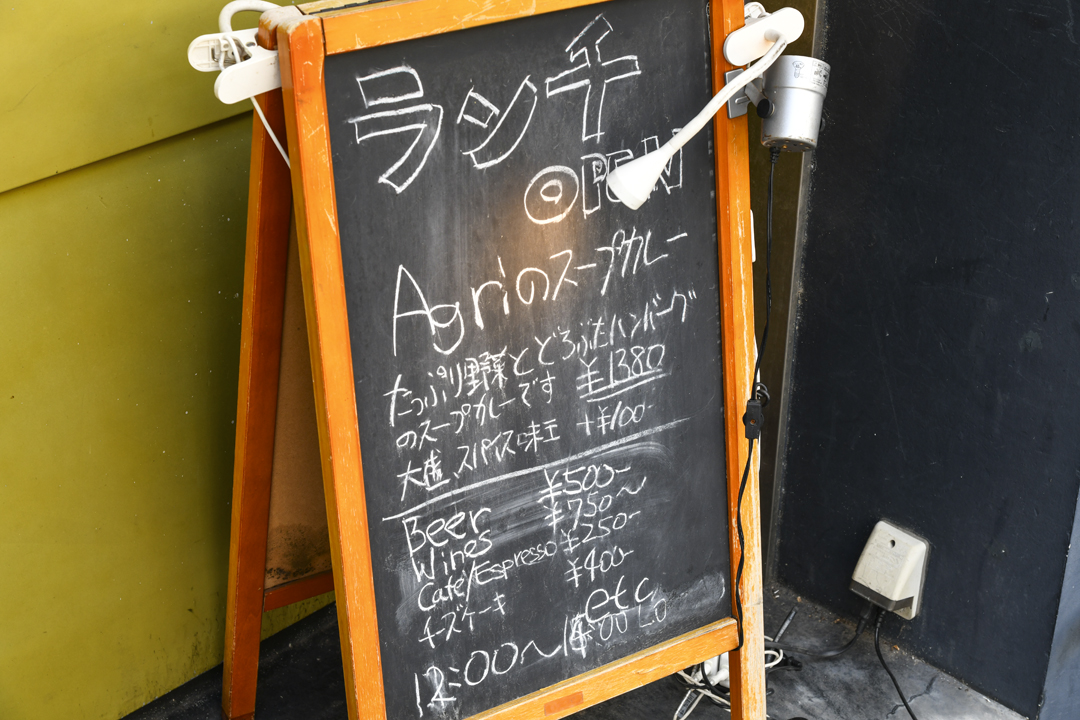 ランチ
OPEN
Agriのスープカレー
たっぷり野菜とどろぶたハンバーグ
のスープカレーです ¥1380
大盛、スパイス味玉 +¥100-
Beer ¥500-
Wines ¥750〜
Cafe/Espresso ¥250-
チーズケーキ ¥400-
etc
12:00〜 :00 L.O